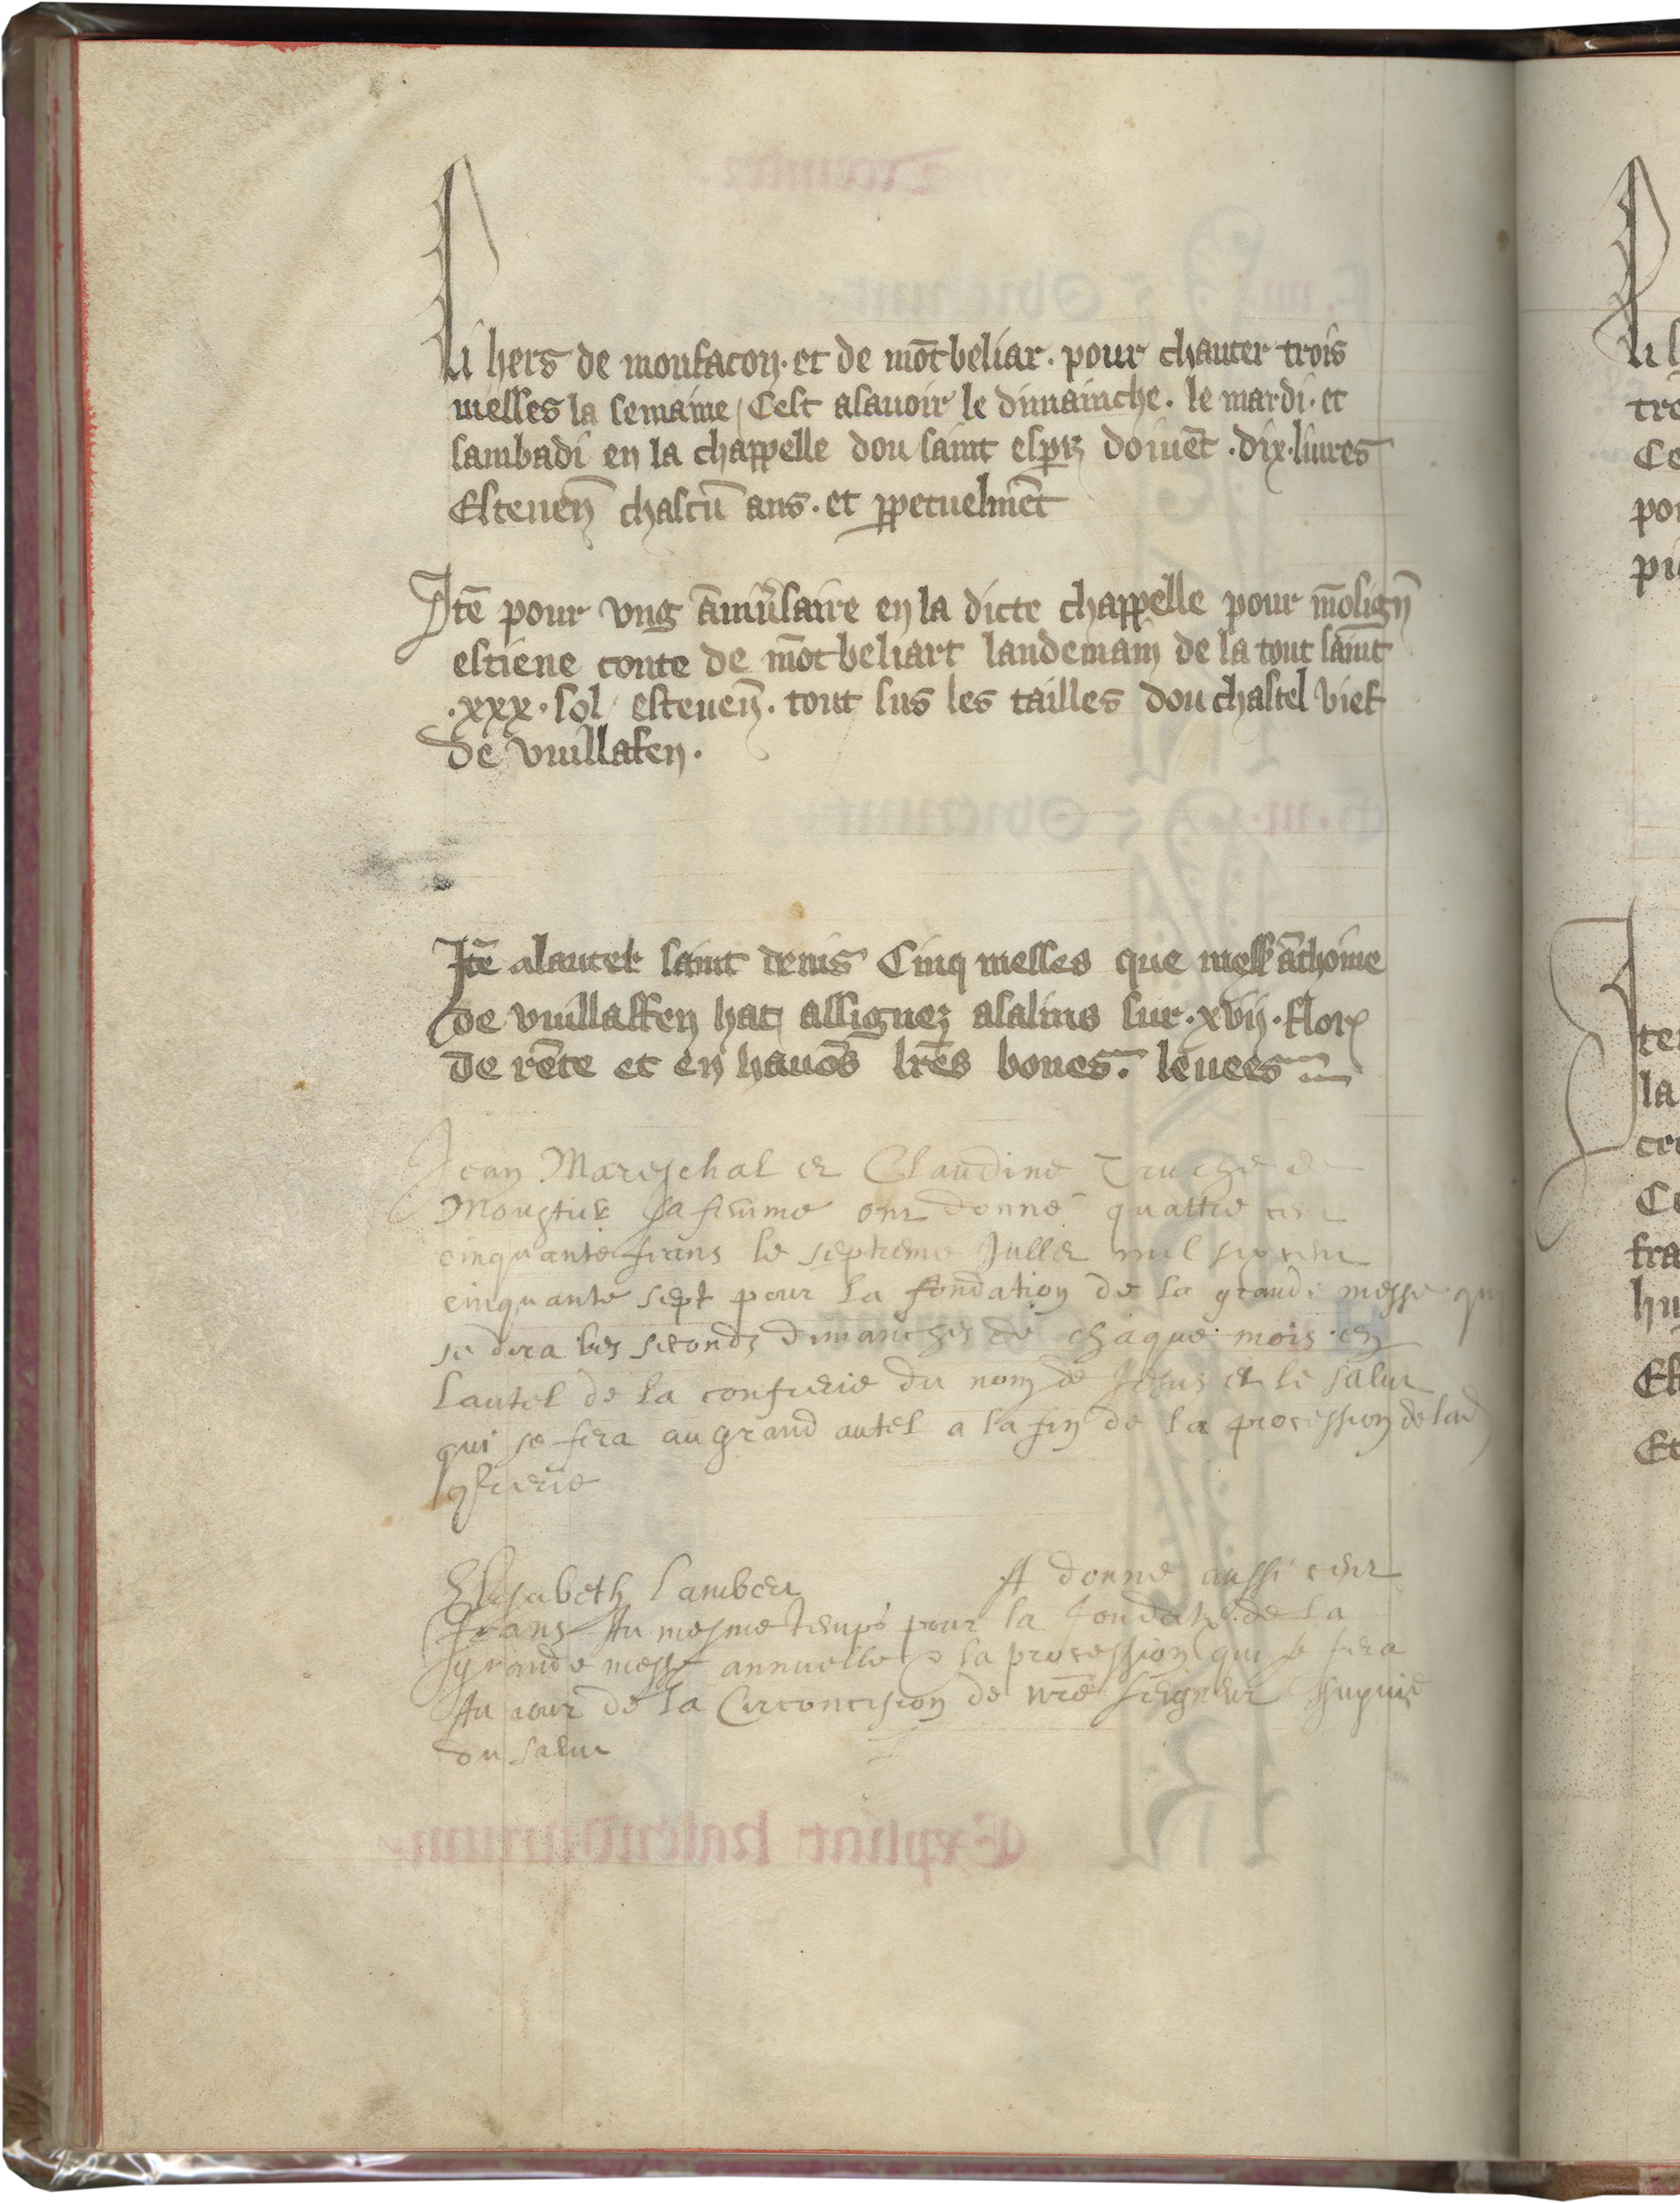 Li hers de monfacon · et de mōtbeliar · pour chanter trois
messes la semaine / Cest asauoir le dimainche · le mardi · et
sambadi en la chappelle dou saint esperit doiuēt · dix · liures
Esteuen̄ chascū ans · et ꝑpetuelmēt
Itē pour vng āniūsaire en la dicte chappelle pour mōsign̄
estiene conte de mōtbeliart landemain de la tout saint
· xxx · sol / esteuen̄ · tout sus les tailles dou chastel vief
de vuillafen ·
Itē alautel saint denis Cinq messes que mess āthoine
de vuillaffen hat assiguez asalins sur · xvij · flor
de rēte et en hauōs lrēs bones · leuees
Jean Mareschal et Claudine Truche de
sa femme ont donné quattre cent
cinquante frans le septieme Jullet mil six cent
cinquante sept pour la fondation de la grande messe qui
se dira les seconds dimanches de chaque mois en
Lautel de la confrerie du nom de Jesus et le salut
qui se fera au grand autel a la fin de la procession de lad
ꝯfrerie
Elisabeth Lambert A donné aussi cent
frans Au mesme temps pour la fondatō de la
grande messe annuelle & la procession qui se fera
Au jour de la Circoncision de nrē seigneur suyuie
du salut
te
la
Ce
po
pi
Et